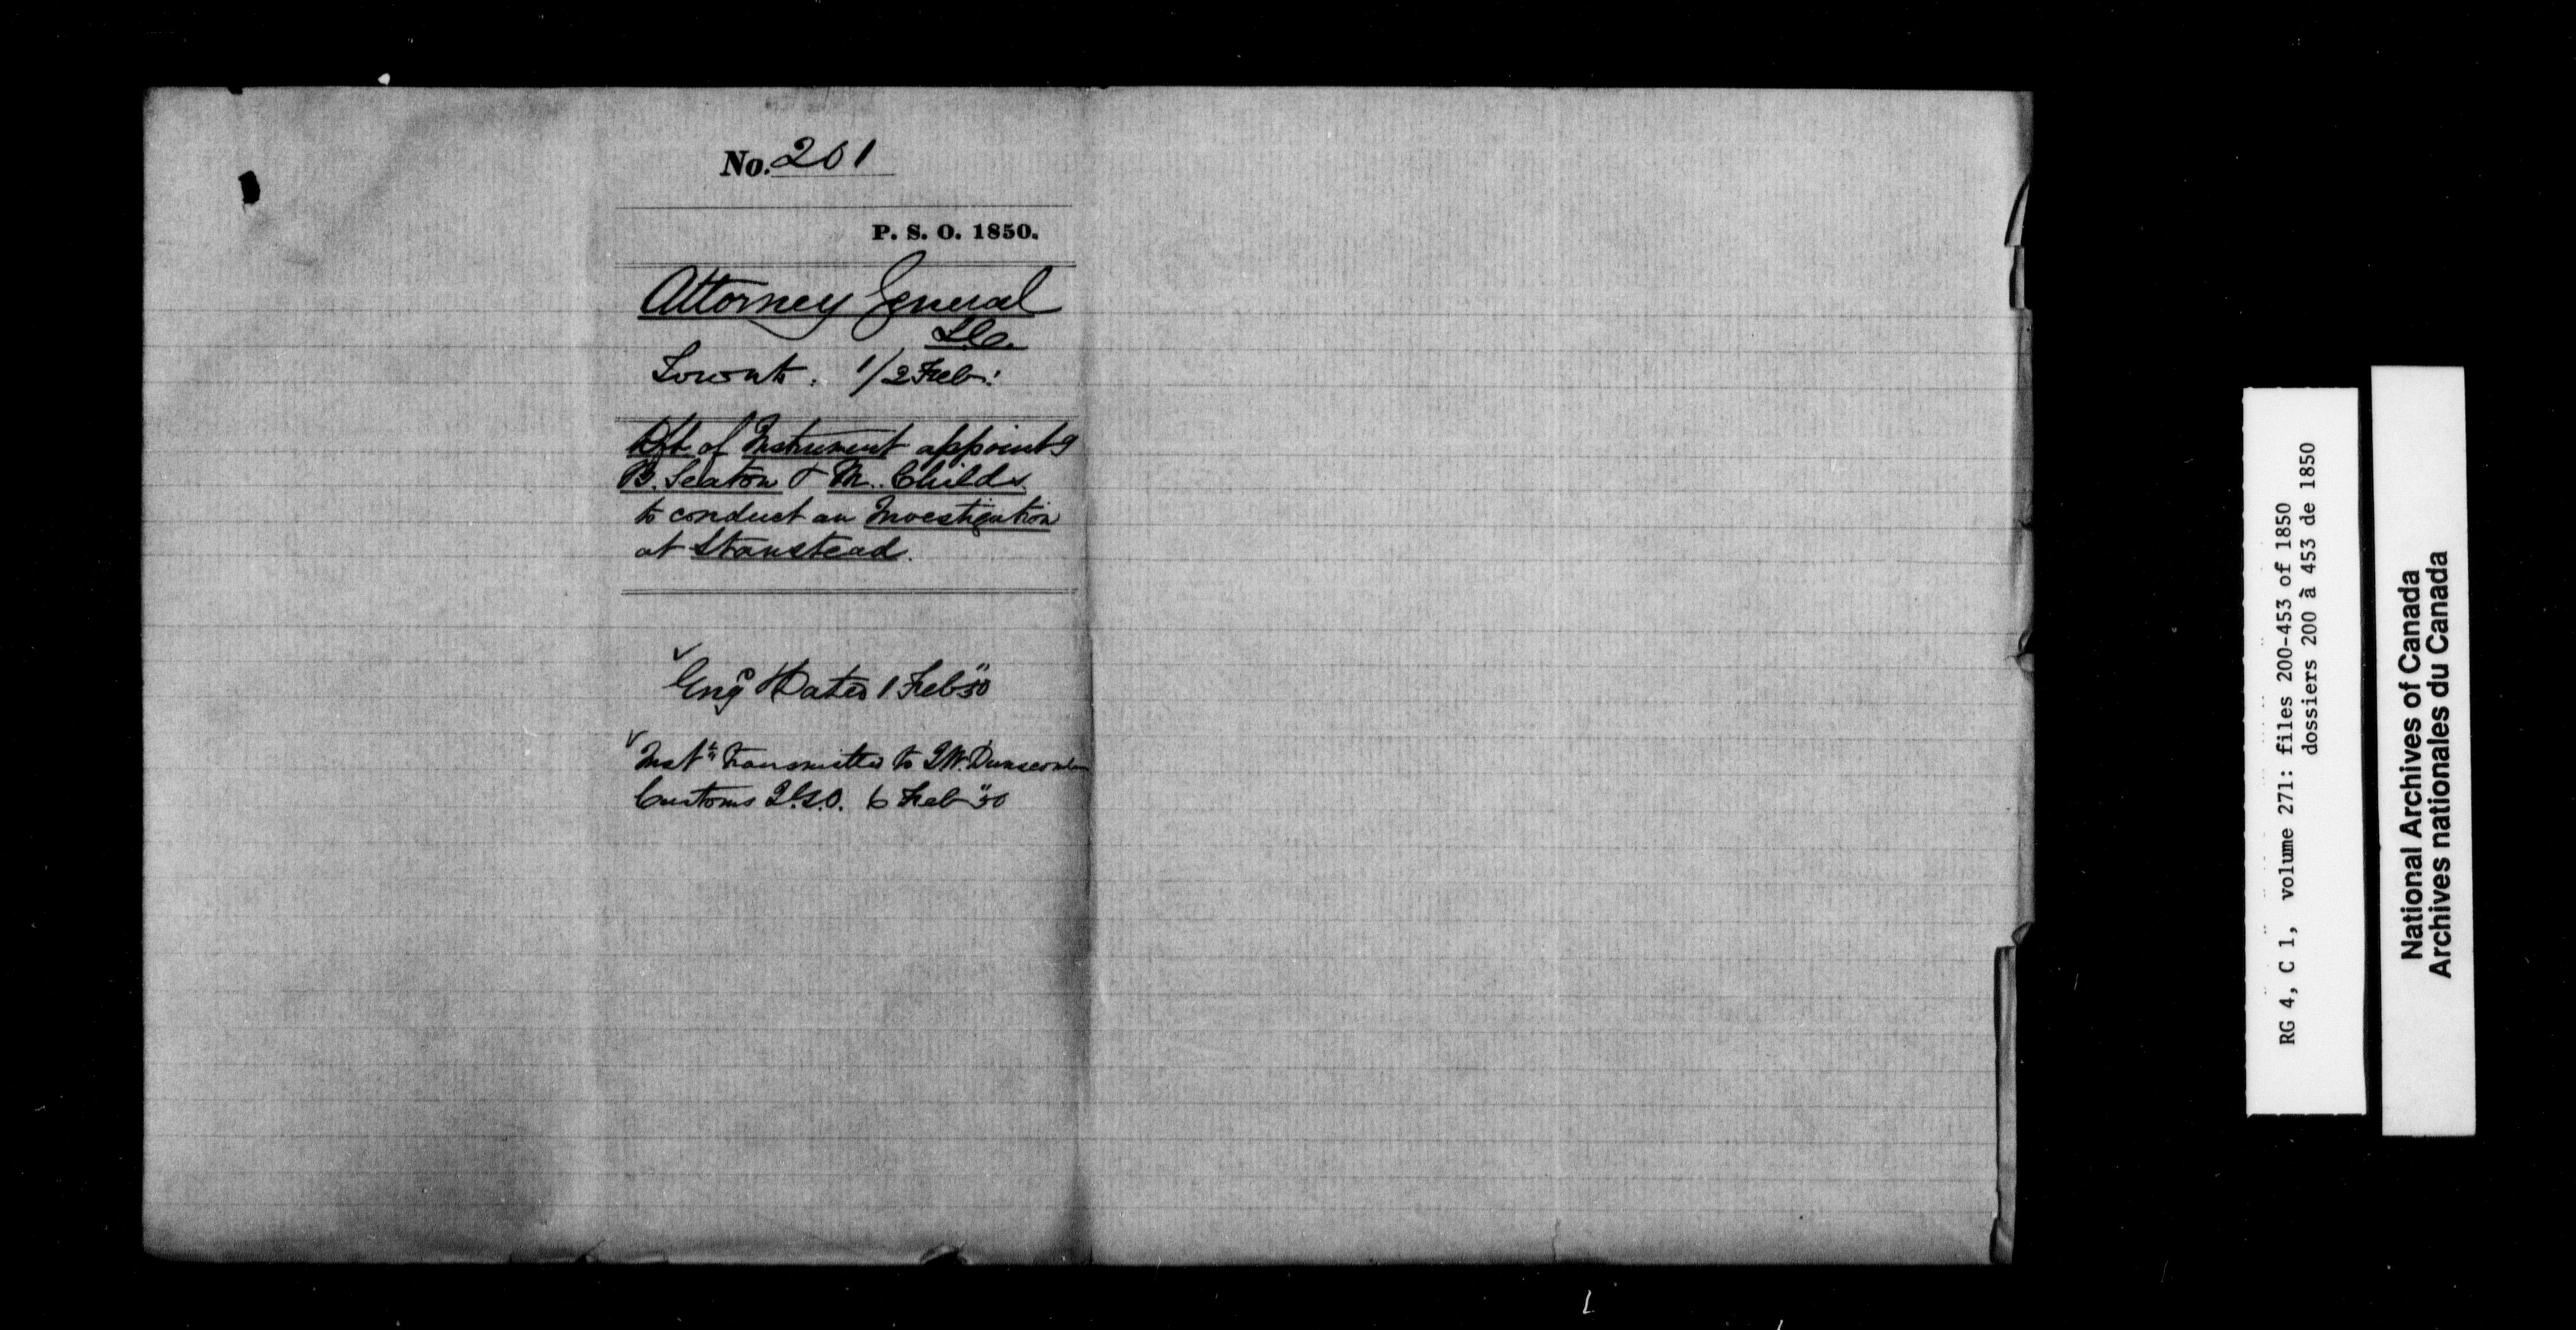 No. 201
P. S. O. 1850.
Attorney General
L.C.
Toronto. 1/2 Feb:
Dft of Instrument appointg
B. Seaton & M. Childs
to conduct an Investigation
at Stanstead.
Engd & Dated 1 Feb "50
Inst transmitted to J.W. Dunscomb
Customs 6 Feb "50
RG 4, C 1, volume 271: files 200-453 of 1850
dossiers 200 à 453 de 1850
National Archives of Canada
Archives nationales du Canada